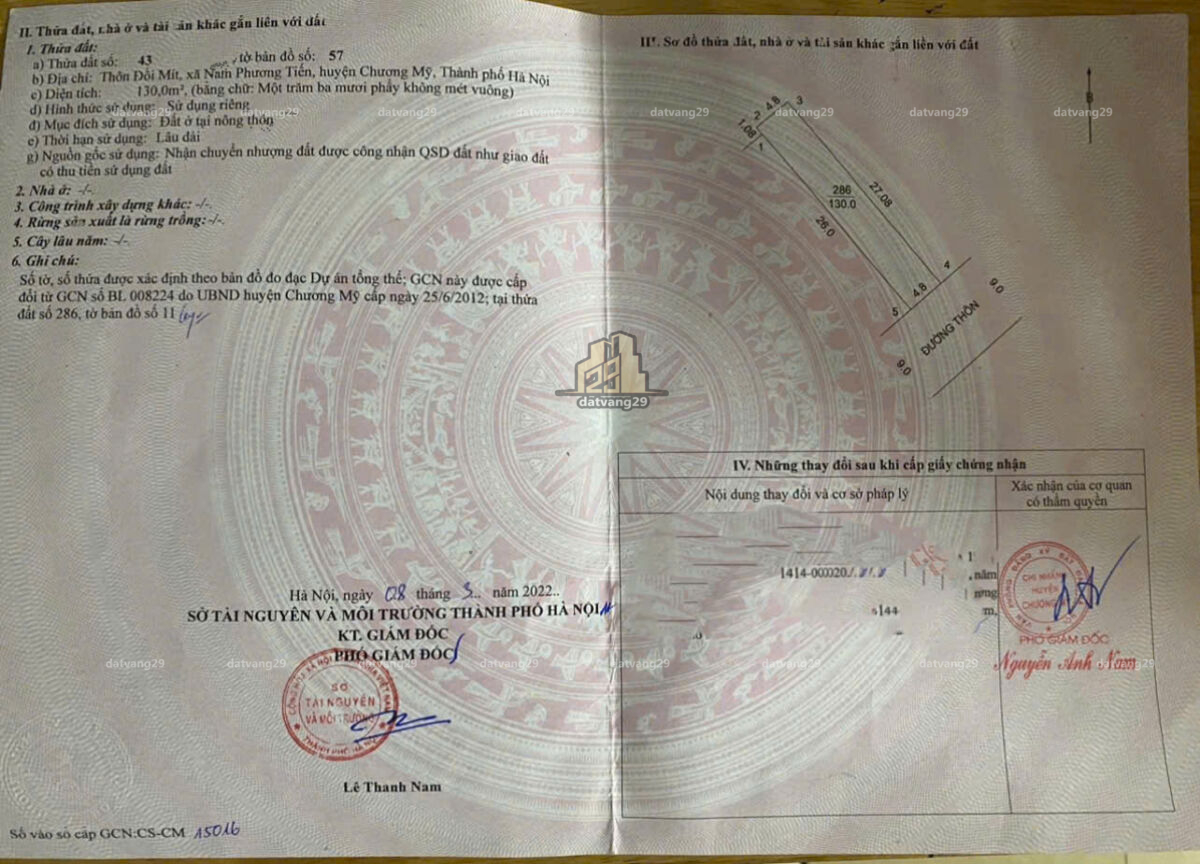 II. Thửa đất, nhà ở và tài sản khác gắn liền với đất
1. Thửa đất:
a) Thửa đất số: 43 , tờ bản đồ số: 57
b) Địa chỉ: Thôn Đồi Mít, xã Nam Phương Tiến, huyện Chương Mỹ, Thành phố Hà Nội
c) Diện tích: 130,0m², (bằng chữ: Một trăm ba mươi phẩy không mét vuông)
d) Hình thức sử dụng: Sử dụng riêng
đ) Mục đích sử dụng: Đất ở tại nông thôn
e) Thời hạn sử dụng: Lâu dài
g) Nguồn gốc sử dụng: Nhận chuyển nhượng đất được công nhận QSD đất như giao đất
có thu tiền sử dụng đất
2. Nhà ở: -/-.
3. Công trình xây dựng khác: -/-.
4. Rừng sản xuất là rừng trồng: -/-.
5. Cây lâu năm: -/-.
6. Ghi chú:
Số tờ, số thửa được xác định theo bản đồ đo đạc Dự án tổng thể; GCN này được cấp
đổi từ GCN số BL 008224 do UBND huyện Chương Mỹ cấp ngày 25/6/2012; tại thửa
đất số 286, tờ bản đồ số 11
Hà Nội, ngày 08 tháng 3.. năm 2022..
SỞ TÀI NGUYÊN VÀ MÔI TRƯỜNG THÀNH PHỐ HÀ NỘI
KT. GIÁM ĐỐC
PHÓ GIÁM ĐỐC
SỞ
TÀI NGUYÊN
VÀ MÔI TRƯỜNG
THÀNH PHỐ HÀ NỘI
Lê Thanh Nam
Số vào sổ cấp GCN:CS-CM 15016
III. Sơ đồ thửa đất, nhà ở và tài sản khác gắn liền với đất
B
1.08
2
4.8
3
1
286
130.0
27.08
26.0
4
4.8
5
9.0
ĐƯỜNG THÔN
9.0
29
datvang29
IV. Những thay đổi sau khi cấp giấy chứng nhận
Nội dung thay đổi và cơ sở pháp lý
Xác nhận của cơ quan
có thẩm quyền
1414-000020
năm
144
CHI NHÁNH
HUYỆN
CHƯƠNG MỸ
PHÓ GIÁM ĐỐC
Nguyễn Anh Nam
datvang29 datvang29 datvang29 datvang29 datvang29
datvang29 datvang29 datvang29 datvang29 datvang29